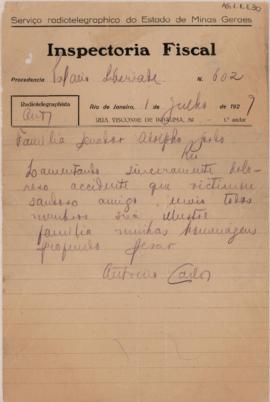 Serviço radiotelegraphico do Estado de Minas Geraes
Inspectoria Fiscal
Procedencia Palacio Liberdade N. 602
Radiotelegraphista
Rio de Janeiro, 1 de julho de 1929
RUA VISCONDE DE INHAÚMA, 1.º andar
Familia Senador Adolpho
Rio
Lamentando sinceramente dolo-
roso accidente que victimou
saudoso amigo, envio todos
membros sua illustre
familia minhas homenagens
profundo pesar
Antonio Carlos